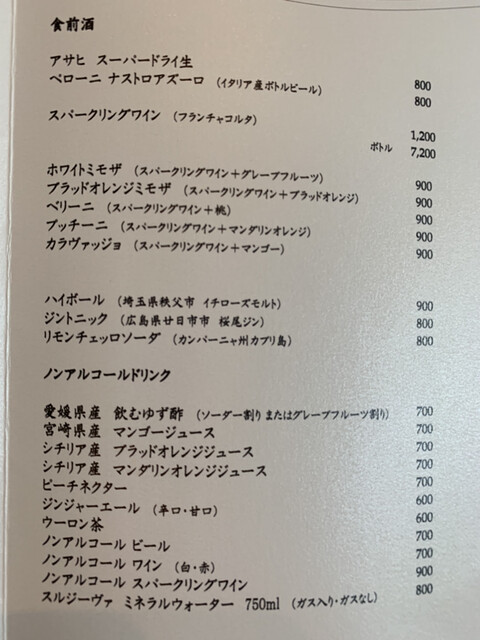 食前酒
アサヒ スーパードライ生 800
ペローニ ナストロアズーロ (イタリア産ボトルビール) 800
スパークリングワイン (フランチャコルタ) 1,200
ボトル 7,200
ホワイトミモザ (スパークリングワイン+グレープフルーツ) 900
ブラッドオレンジミモザ (スパークリングワイン+ブラッドオレンジ) 900
ベリーニ (スパークリングワイン+桃) 900
プッチーニ (スパークリングワイン+マンダリンオレンジ) 900
カラヴァッジョ (スパークリングワイン+マンゴー) 900
ハイボール (埼玉県秩父市 イチローズモルト) 900
ジントニック (広島県廿日市市 桜尾ジン) 800
リモンチェッロソーダ (カンパーニャ州カプリ島) 800
ノンアルコールドリンク
愛媛県産 飲むゆず酢 (ソーダー割り またはグレープフルーツ割り) 700
宮崎県産 マンゴージュース 700
シチリア産 ブラッドオレンジジュース 700
シチリア産 マンダリンオレンジジュース 700
ピーチネクター 700
ジンジャーエール (辛口・甘口) 600
ウーロン茶 600
ノンアルコール ビール 700
ノンアルコール ワイン (白・赤) 700
ノンアルコール スパークリングワイン 900
スルジーヴァ ミネラルウォーター 750ml (ガス入り・ガスなし) 800